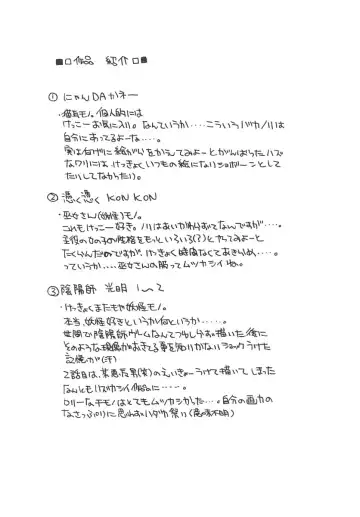 ■□作品 紹介□■
①にゃんDAカネー
・猫耳モノ。個人的には
けっこーお気に入り。なんていうか‥‥こういうバカノリは
自分にあってるよーな‥‥。
実は右げに絵がらをかえてみよーとがんばったハズ
なワリには、けっきょくいつもの絵になりショボーンとして
たりしてなかったり。
②憑く憑く KON KON
・巫女さん(妖怪)モノ。
これもけっこー好き。ノリはあいかわらずってなんですが‥‥。
主役の女の子の性格をもっといろいろ(?)とやってみよーと
たくらんだのですが、けっきょく時間なくてあきらめ‥‥。
っていうか‥‥巫女さんの服ってムツカシイね。
③陰陽師 光明 1〜2
・けっきょくまたもや妖怪モノ。
本当、妖怪好きというか何というか‥‥‥。
世間で陰陽師ゲームなんてつゆしらず描いた後に
そのような現象がおきてる事を知りかなりショックうけた
記憶が(汗)
2話目は、某悪友兄(笑)のえいきょーうけて描いてしまった
なんともハズカシイ作品に‥‥‥。
ロリーなキモノはとてもムツカシかった‥‥。自分の画力の
なさっぷりに思わずハダカ祭り(意味不明)